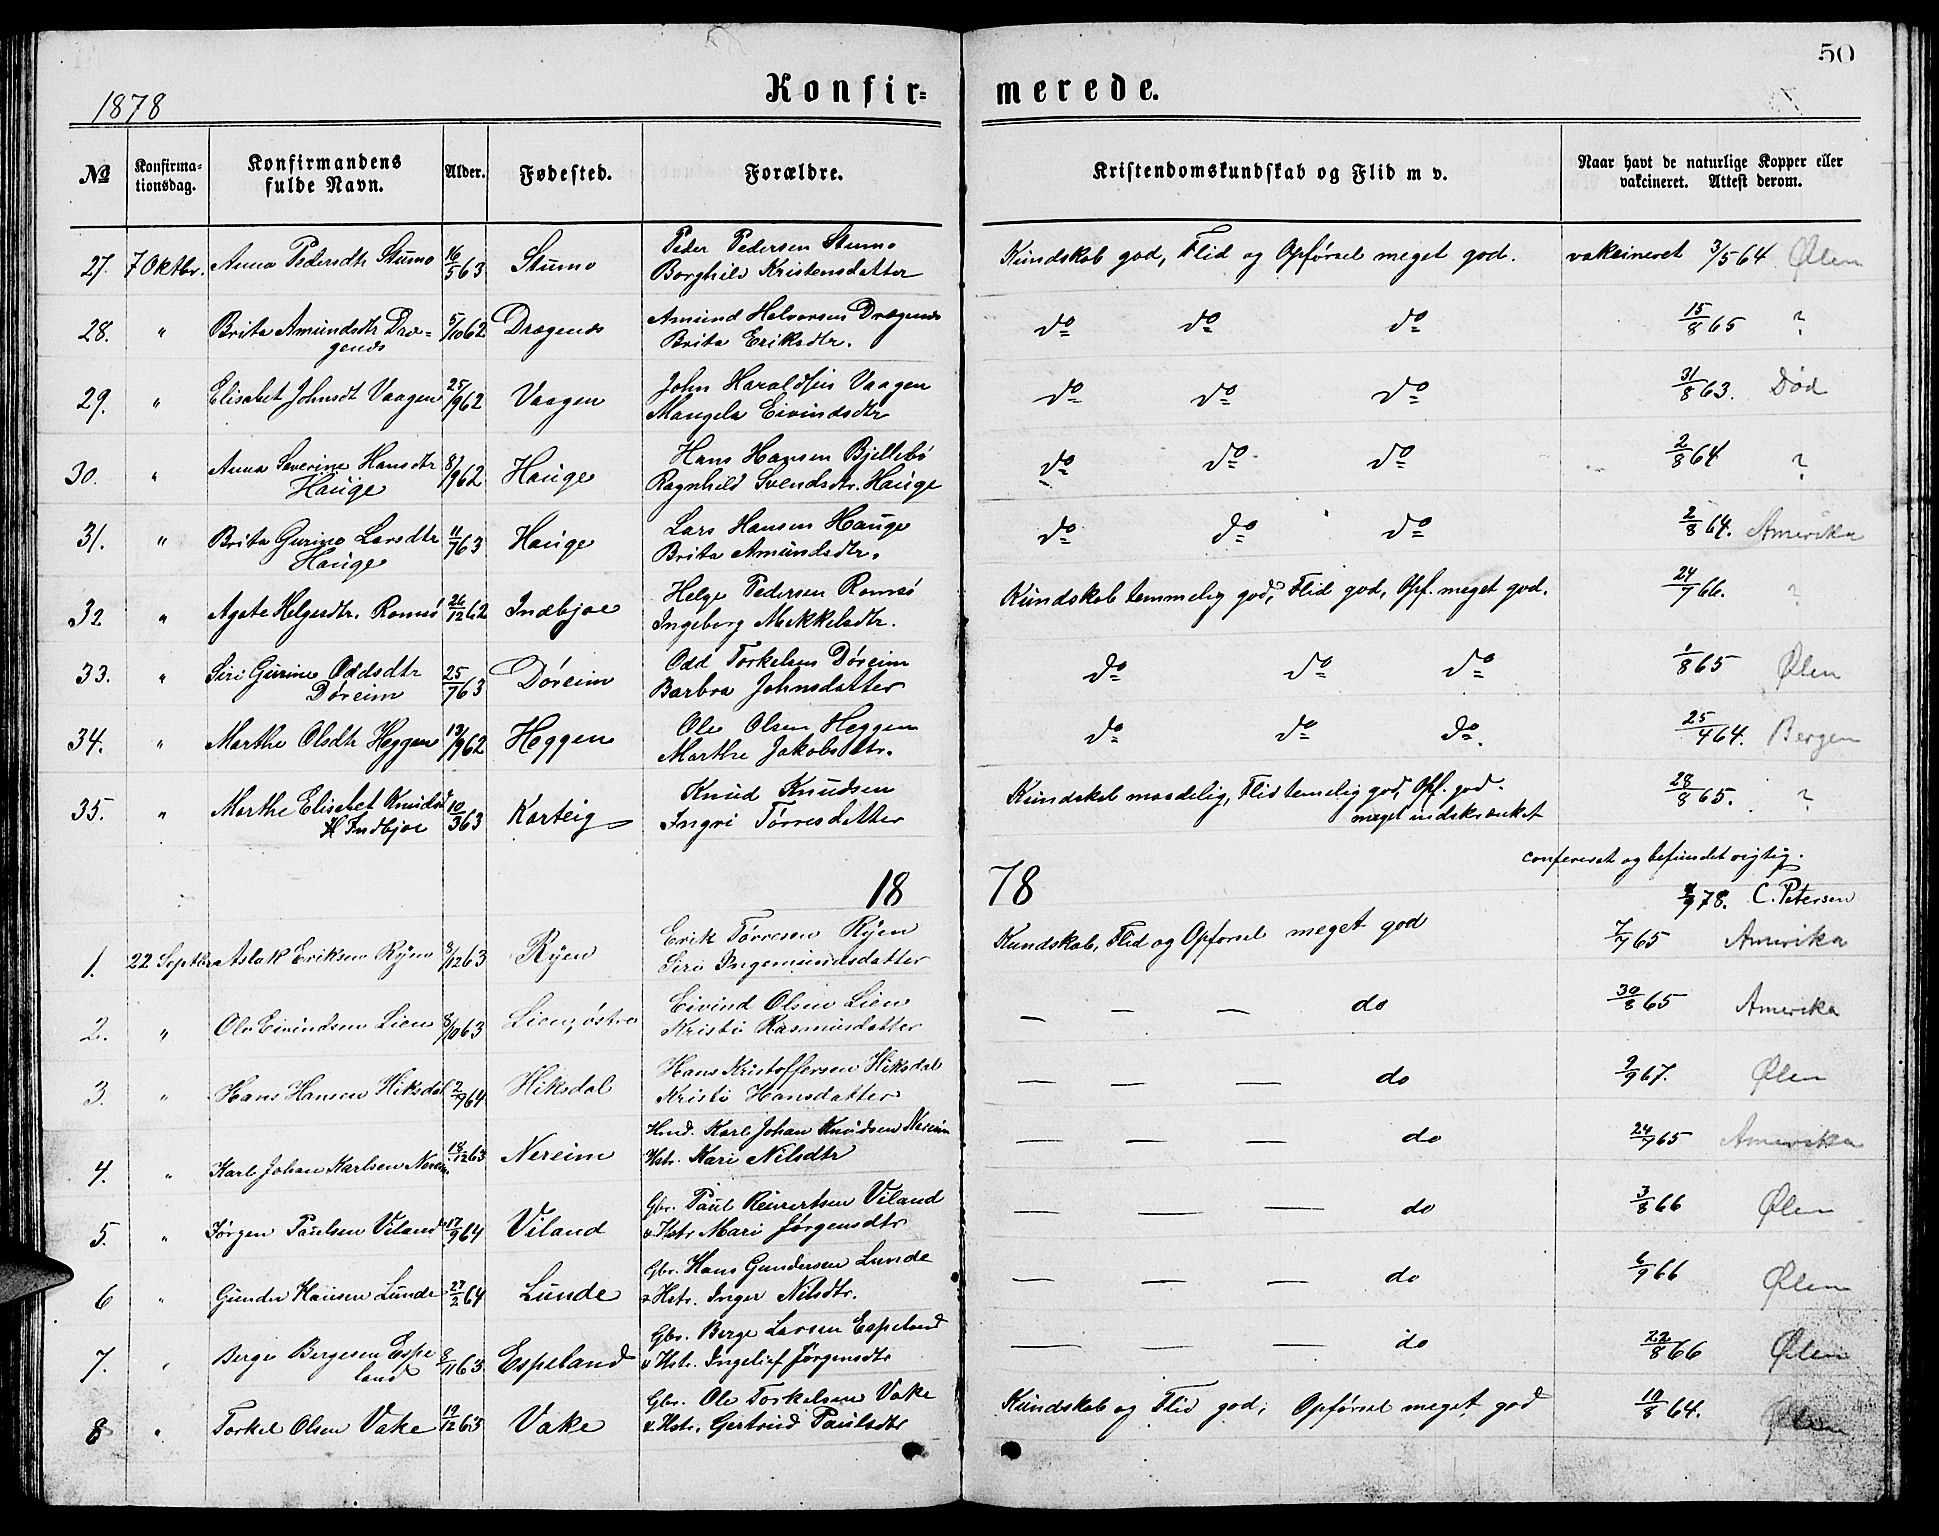 50
1878
Konfir= merede.
№ Konfirma-tionsdag. Konfirmandens fulde Navn. Alder. Fødested. Forældre. Kristendomskundskab og Flid m v. Naar havt de naturlige Kopper eller vakcineret. Attest derom.
27. 7 Oktbr. Anna Pedersdtr Stumo 16/5 63 Stumo Peder Pedersen Stumo Kundskab god, Flid og Opførsel meget god. vakcineret 3/5 64 Ølen
Borghild Kristensdatter
28. " Brita Amundsdtr Dra= 5/10 62 Dragenes Amund Halvorsen Dragenes do do do 15/8 65 ?
genes Brita Eriksdtr.
29. " Elisabet Johnsdt Vaagen 25/9 62 Vaagen John Haraldsen Vaagen do do do 31/8 63. Død
Mangela Eivindsdtr
30. " Anna Severine Hansdtr 8/9 62 Hauge Hans Hansen Bjellebø do do do 2/8 64 ?
Hauge Ragnhild Svendsdtr. Hauge
31. " Brita Gurine Larsdtr 11/7 63 Hauge Lars Hansen Hauge do do do 2/8 64. Amerika
Hauge Brita Amundsdtr.
32 " Agate Helgesdtr. Romsø 26/12 62 Indbjoe Helge Pedersen Romsø Kundskab temmelig god, Flid god, Opf. meget god. 24/7 66. ?
Ingeborg Mekkelsdtr.
33. " Siri Gurine Oddsdtr 25/7 63 Døreim Odd Torkelsen Døreim do do do 1/8 65 Ølen
Døreim Barbra Johnsdatter
34. " Marthe Olsdtr Heggen 13/9 62 Heggen Ole Olsen Heggen do do do. 25/4 64. Bergen
Marthe Jakobsdtr.
35. " Marthe Elisabet Knudsd 10/3 63 Karteig Knud Knudsen Kundskab maadelig, Flid temelig god, Opf. god. 28/8 65. ?
Indbjoe Ingri Tørresdatter meget indskrænket
confereret og befundet rigtig.
18 78 9/9 78. C. Petersen
1. 22 Septbr Aslak Eriksen Ryen 8/12 63 Ryen Erik Tørresen Ryen Kundskab, Flid og Opførsel meget god 7/7 65 Amerika
Siri Ingemundsdatter
2. " Ole Eivindsen Lien 8/10 63 Lien, østre Eivind Olsen Lien — — — do 30/8 65 Amerika
Kristi Rasmusdatter
3. " Hans Hansen Hiksdal 2/9 64 Hiksdal Hans Kristoffersen Hiksdal — — — do 9/9 67. Ølen
Kristi Hansdatter
4. " Karl Johan Karlsen Nereim 18/12 63 Nereim Hmd. Karl Johan Knudsen Nereim — — — do 24/7 65 Amerika
Hstr. Kari Nilsdtr
5. " Jørgen Paulsen Viland 17/9 64 Viland Gbr. Paul Reinertsen Viland — — — do 3/8 66 Ølen
& Hstr Mari Jørgensdtr
6 " Gunder Hansen Lunde 27/2 64 Lunde Gbr. Hans Gundersen Lunde — — — do 6/9 66 Ølen
& Hstr. Inger Nilsdtr.
7. " Berge Bergesen Espe 8/11 63 Espeland Gbr. Berge Larsen Espeland — — — do 22/8 66 Ølen
land & Hstr. Ingelief Jørgensdtr
8 " Torkel Olsen Vake 19/12 63 Vake Gbr. Ole Torkelsen Vake Kundskab og Flid god; Opførsel meget god 10/8 64. Ølen
& Hstr. Gertrud Paulsdtr